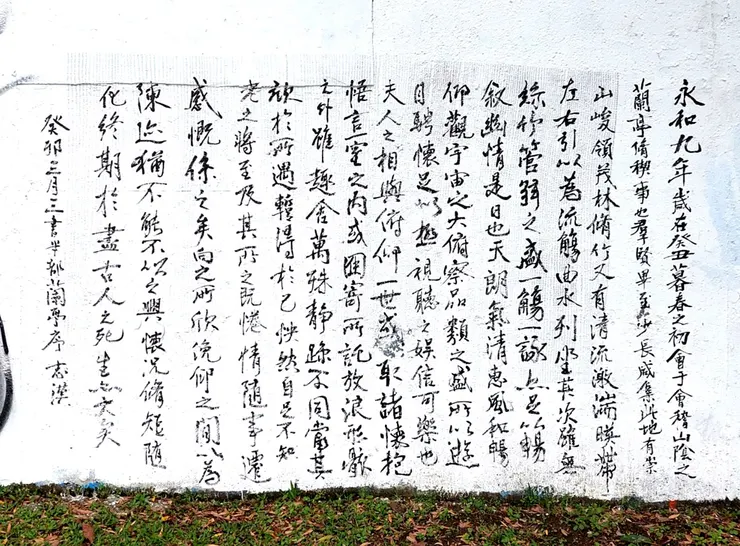 永和九年歲在癸丑暮春之初會于會稽山陰之
蘭亭脩稧事也羣賢畢至少長咸集此地有崇
山峻領茂林脩竹又有清流激湍暎帶
左右引以為流觴曲水列坐其次雖無
絲竹管弦之盛一觴一詠亦足以暢
敘幽情是日也天朗氣清惠風和暢
仰觀宇宙之大俯察品類之盛所以遊
目騁懷足以極視聽之娛信可樂也
夫人之相與俯仰一世或取諸懷抱
悟言一室之內或因寄所託放浪形骸
之外雖趣舍萬殊靜躁不同當其
欣於所遇暫得於己怏然自足不知
老之將至及其所之既惓情隨事遷
感慨係之矣向之所欣俛仰之閒以為
陳迹猶不能不以之興懷況脩短隨
化終期於盡古人云死生亦大矣
癸卯三月三書半部蘭亭序 志漢